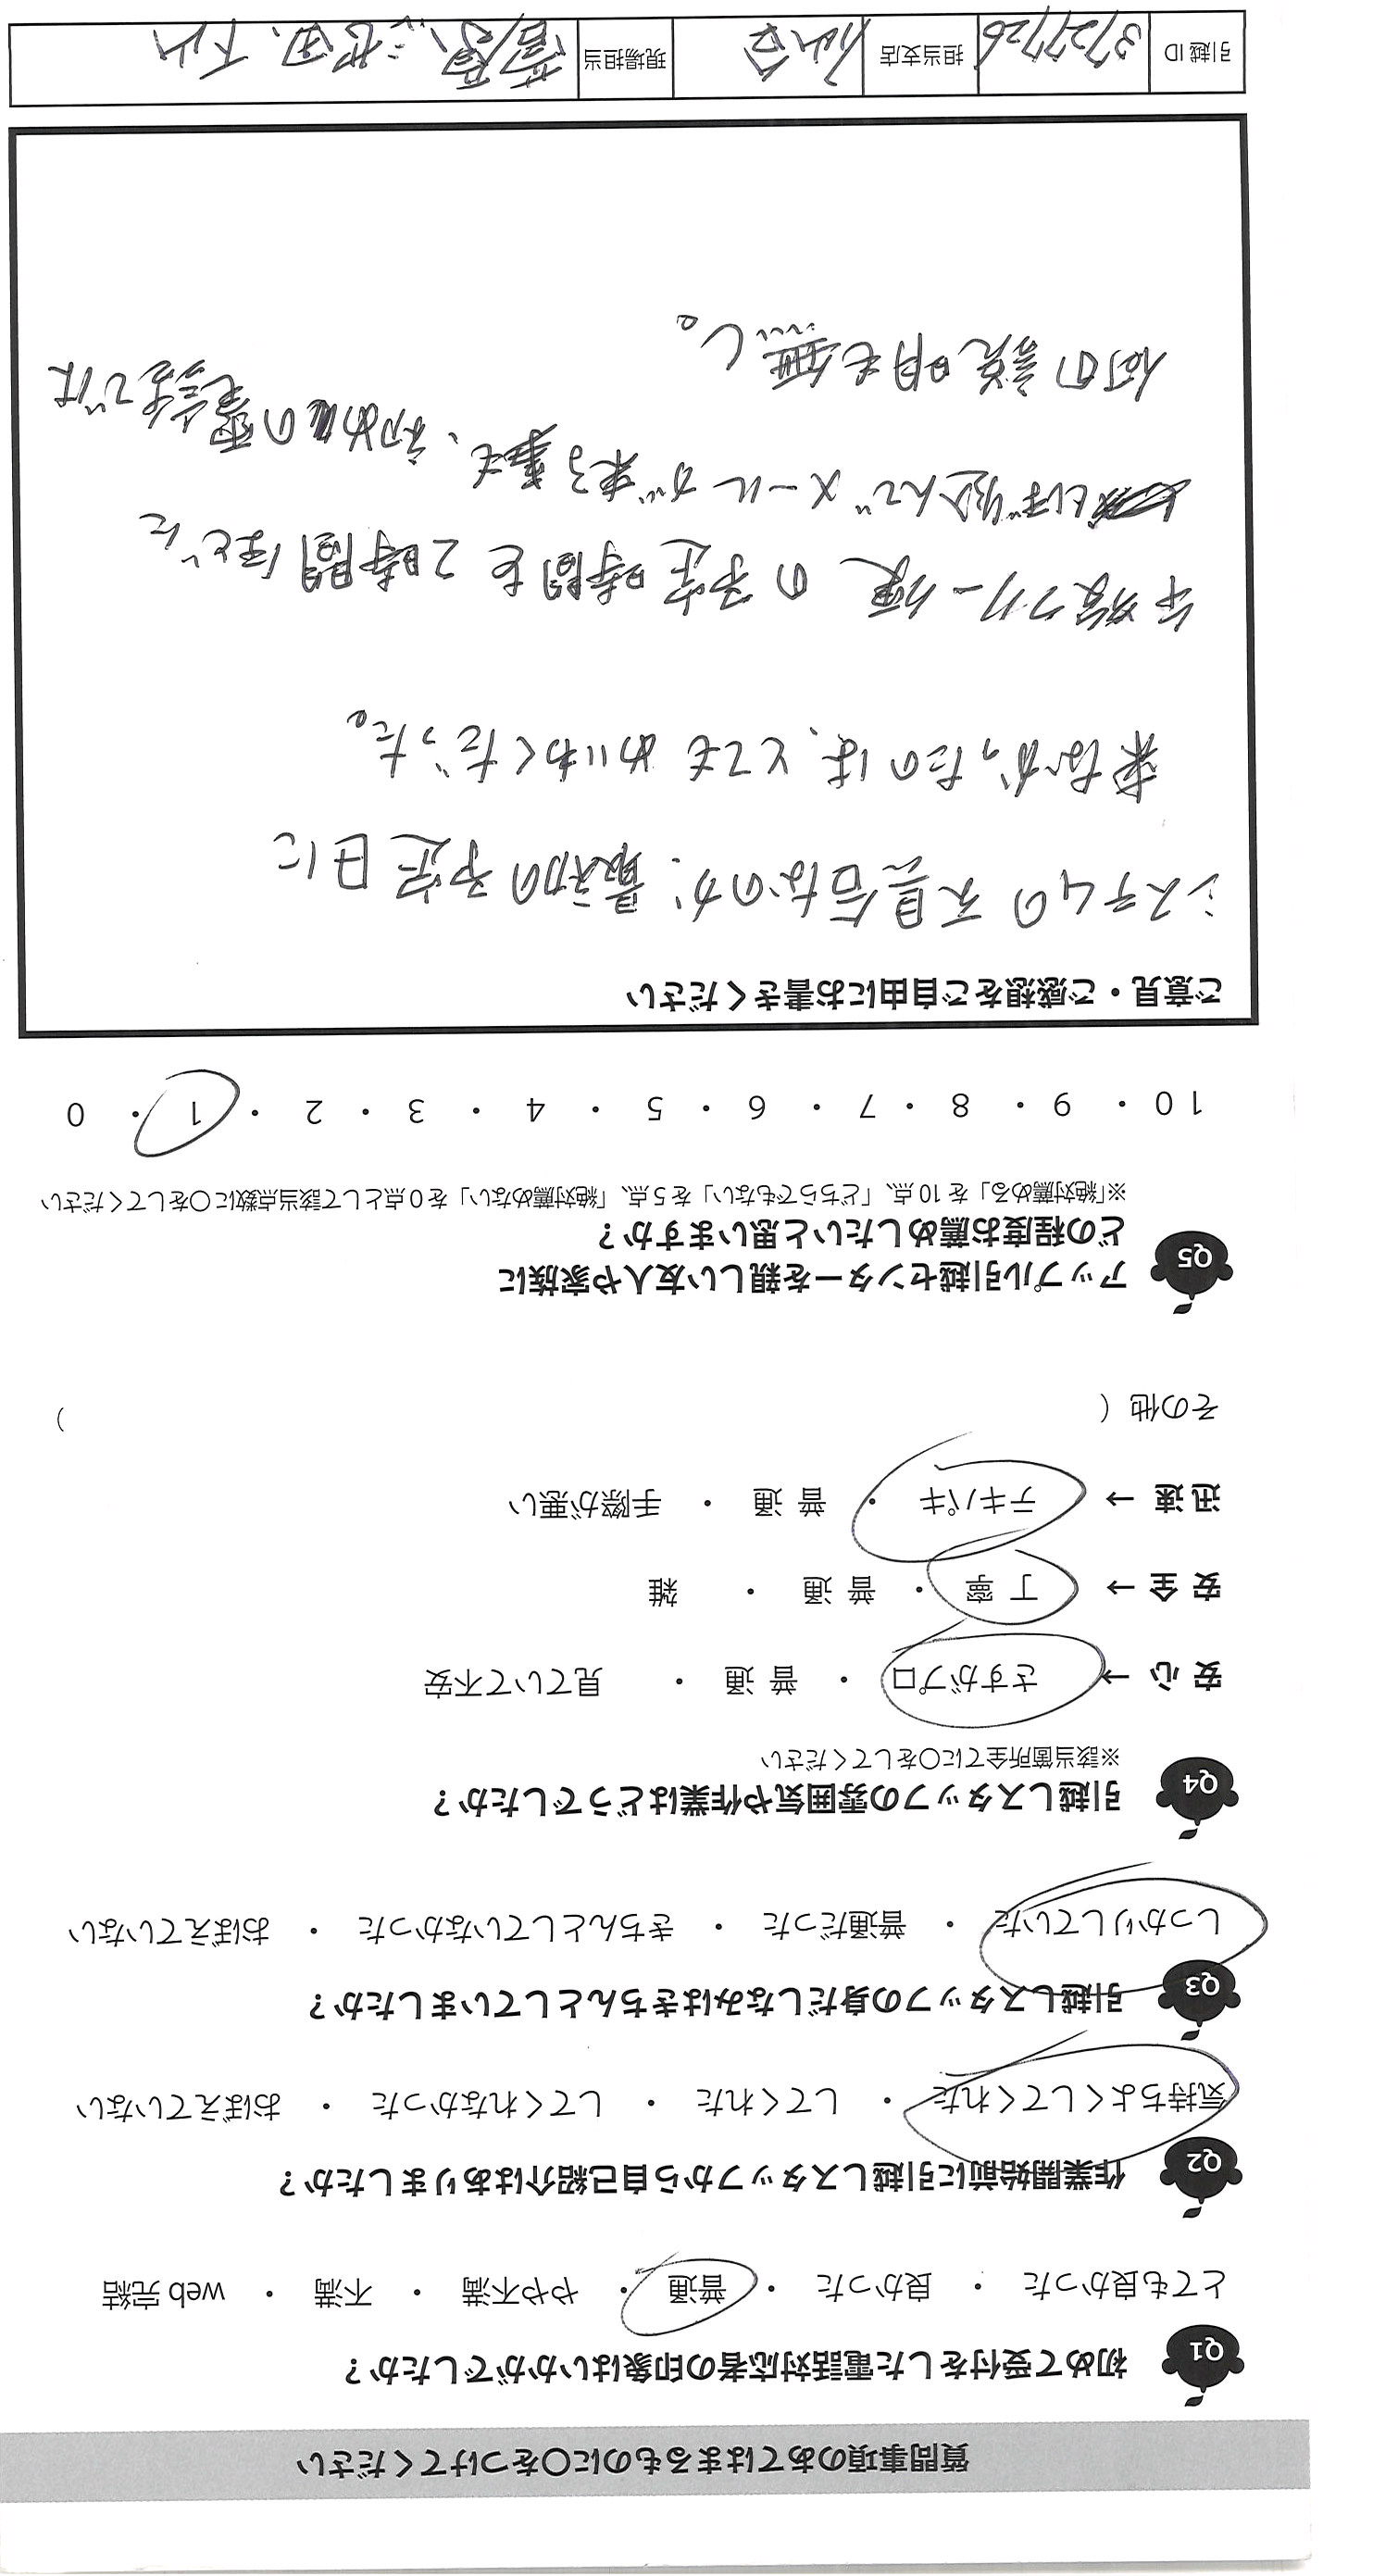 質問事項のあてはまるものに〇をつけてください
Q1 初めて受付をした電話対応者の印象はいかがでしたか？
とても良かった ・ 良かった ・ 普通 ・ やや不満 ・ 不満 ・ web 完結
Q2 作業開始前に引越しスタッフから自己紹介はありましたか？
気持ちよくしてくれた ・ してくれた ・ してくれなかった ・ おぼえていない
Q3 引越しスタッフの身だしなみはきちんとしていましたか？
しっかりしていた ・ 普通だった ・ きちんとしていなかった ・ おぼえていない
Q4 引越しスタッフの雰囲気や作業はどうでしたか？
※該当箇所全てに〇をしてください
安 心 → さすがプロ ・ 普 通 ・ 見ていて不安
安 全 → 丁 寧 ・ 普 通 ・ 雑
迅 速 → テキパキ ・ 普 通 ・ 手際が悪い
その他（ ）
Q5 アップル引越センターを親しい友人や家族に
どの程度お薦めしたいと思いますか？
※「絶対薦める」を 10 点、「どちらでもない」を 5 点、「絶対薦めない」を 0 点として該当点数に〇をしてください
10 ・ 9 ・ 8 ・ 7 ・ 6 ・ 5 ・ 4 ・ 3 ・ 2 ・ 1 ・ 0
ご意見・ご感想をご自由にお書きください
システムの不具合なのか、最初の予定日に
来なかったのは、とてもめいわくだった。
午後フリー便の予定時間を2時間ほどに
しぼり込んでメールが来る事も、初めの電話では
何の説明も無し。
引越 ID 3727726 担当支店 仙台 現場担当 菅原、三世田、下山